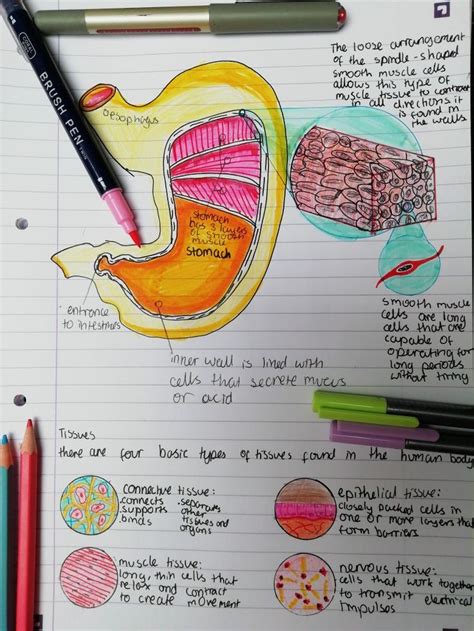 The loose arrangement
of the spindle-shaped
smooth muscle cells
allows this type of
muscle tissue to contract
in all directions it
is found in
the walls
oesophagus
BRUSH PEN
stomach
has 3 layers
of smooth
muscle
stomach
entrance
to intestines
smooth muscle
cells are long
cells that are
capable of
operating for
long periods
without tiring
inner wall is lined with
cells that secrete mucus
or acid
Tissues
there are four basic types of tissues found in the human body
connective tissue:
connects .separates
supports other
binds tissues and
organs
epithelial tissue:
closely packed cells in
one or more layers that
form barriers
muscle tissue:
long, thin cells that
relax and contract
to create movement
nervous tissue:
cells that work together
to transmit electrical
impulses